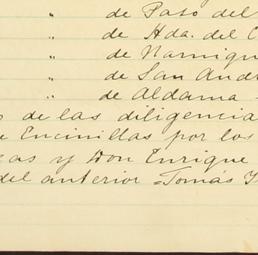 " de Paso del
" de Hda. del C
" de Namiqu
" de San Andr
" de Aldama
s de las diligencia
e Encinillas por los
cas y Don Enrique
del anterior = Tomás